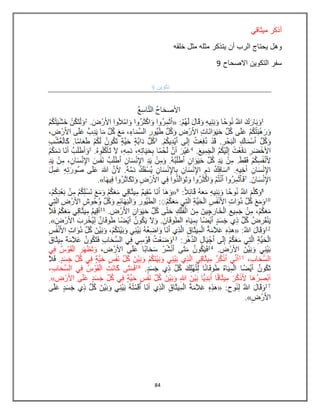 أذكر ميثاقي
وهل يحتاج الرب أن يتذكر مثله مثل خلقه
سفر التكوين الاصحاح 9
تكوين 9
اَلأَصْحَاحُ التَّاسِعُ
1وَبَارَكَ اللهُ نُوحًا وَبَنِيهِ وَقَالَ لَهُمْ: «أَثْمِرُوا وَاكْثُرُوا وَامْلأُوا الأَرْضَ. 2وَلْتَكُنْ خَشْيَتُكُمْ
وَرَهْبَتُكُمْ عَلَى كُلِّ حَيَوَانَاتِ الأَرْضِ وَكُلِّ طُيُورِ السَّمَاءِ، مَعَ كُلِّ مَا يَدِبُّ عَلَى الأَرْضِ،
وَكُلِّ أَسْمَاكِ الْبَحْرِ. قَدْ دُفِعَتْ إِلَى أَيْدِيكُمْ. 3كُلُّ دَابَّةٍ حَيَّةٍ تَكُونُ لَكُمْ طَعَامًا. كَالْعُشْبِ
الأَخْضَرِ دَفَعْتُ إِلَيْكُمُ الْجَمِيعَ. 4غَيْرَ أَنَّ لَحْمًا بِحَيَاتِهِ، دَمِهِ، لاَ تَأْكُلُوهُ. 5وَأَطْلُبُ أَنَا دَمَكُمْ
لأَنْفُسِكُمْ فَقَطْ. مِنْ يَدِ كُلِّ حَيَوَانٍ أَطْلُبُهُ. وَمِنْ يَدِ الإِنْسَانِ أَطْلُبُ نَفْسَ الإِنْسَانِ، مِنْ يَدِ
الإِنْسَانِ أَخِيهِ. 6سَافِكُ دَمِ الإِنْسَانِ بِالإِنْسَانِ يُسْفَكُ دَمُهُ. لأَنَّ اللهَ عَلَى صُورَتِهِ عَمِلَ
الإِنْسَانَ. 7فَأَثْمِرُوا أَنْتُمْ وَاكْثُرُوا وَتَوَالَدُوا فِي الأَرْضِ وَتَكَاثَرُوا فِيهَا».
8وَكَلَّمَ اللهُ نُوحًا وَبَنِيهِ مَعهُ قَائِلاً: 9«وَهَا أَنَا مُقِيمٌ مِيثَاقِي مَعَكُمْ وَمَعَ نَسْلِكُمْ مِنْ بَعْدِكُمْ،
10وَمَعَ كُلِّ ذَوَاتِ الأَنْفُسِ الْحَيَّةِ الَّتِي مَعَكُمْ: الطُّيُورِ وَالْبَهَائِمِ وَكُلِّ وُحُوشِ الأَرْضِ الَّتِي
مَعَكُمْ، مِنْ جَمِيعِ الْخَارِجِينَ مِنَ الْفُلْكِ حَتَّى كُلُّ حَيَوَانِ الأَرْضِ. 11أُقِيمُ مِيثَاقِي مَعَكُمْ فَلاَ
يَنْقَرِضُ كُلُّ ذِي جَسَدٍ أَيْضًا بِمِيَاهِ الطُّوفَانِ. وَلاَ يَكُونُ أَيْضًا طُوفَانٌ لِيُخْرِبَ الأَرْضَ».
12وَقَالَ اللهُ: «هذِهِ عَلاَمَةُ الْمِيثَاقِ الَّذِي أَنَا وَاضِعُهُ بَيْنِي وَبَيْنَكُمْ، وَبَيْنَ كُلِّ ذَوَاتِ الأَنْفُسِ
الْحَيَّةِ الَّتِي مَعَكُمْ إِلَى أَجْيَالِ الدَّهْرِ: 13وَضَعْتُ قَوْسِي فِي السَّحَابِ فَتَكُونُ عَلاَمَةَ مِيثَاقٍ
بَيْنِي وَبَيْنَ الأَرْضِ. 14فَيَكُونُ مَتَى أَنْشُرْ سَحَابًا عَلَى الأَرْضِ، وَتَظْهَرِ الْقَوْسُ فِي
السَّحَابِ، 15أَنِّي أَذْكُرُ مِيثَاقِيَ الَّذِي بَيْنِي وَبَيْنَكُمْ وَبَيْنَ كُلِّ نَفْسٍ حَيَّةٍ فِي كُلِّ جَسَدٍ. فَلاَ
تَكُونُ أَيْضًا الْمِيَاهُ طُوفَانًا لِتُهْلِكَ كُلَّ ذِي جَسَدٍ. 16فَمَتَى كَانَتِ الْقَوْسُ فِي السَّحَابِ،
أُبْصِرُهَا لأَذْكُرَ مِيثَاقًا أَبَدِيًّا بَيْنَ اللهِ وَبَيْنَ كُلِّ نَفْسٍ حَيَّةٍ فِي كُلِّ جَسَدٍ عَلَى الأَرْضِ».
17وَقَالَ اللهُ لِنُوحٍ: «هذِهِ عَلاَمَةُ الْمِيثَاقِ الَّذِي أَنَا أَقَمْتُهُ بَيْنِي وَبَيْنَ كُلِّ ذِي جَسَدٍ عَلَى
الأَرْضِ».
84